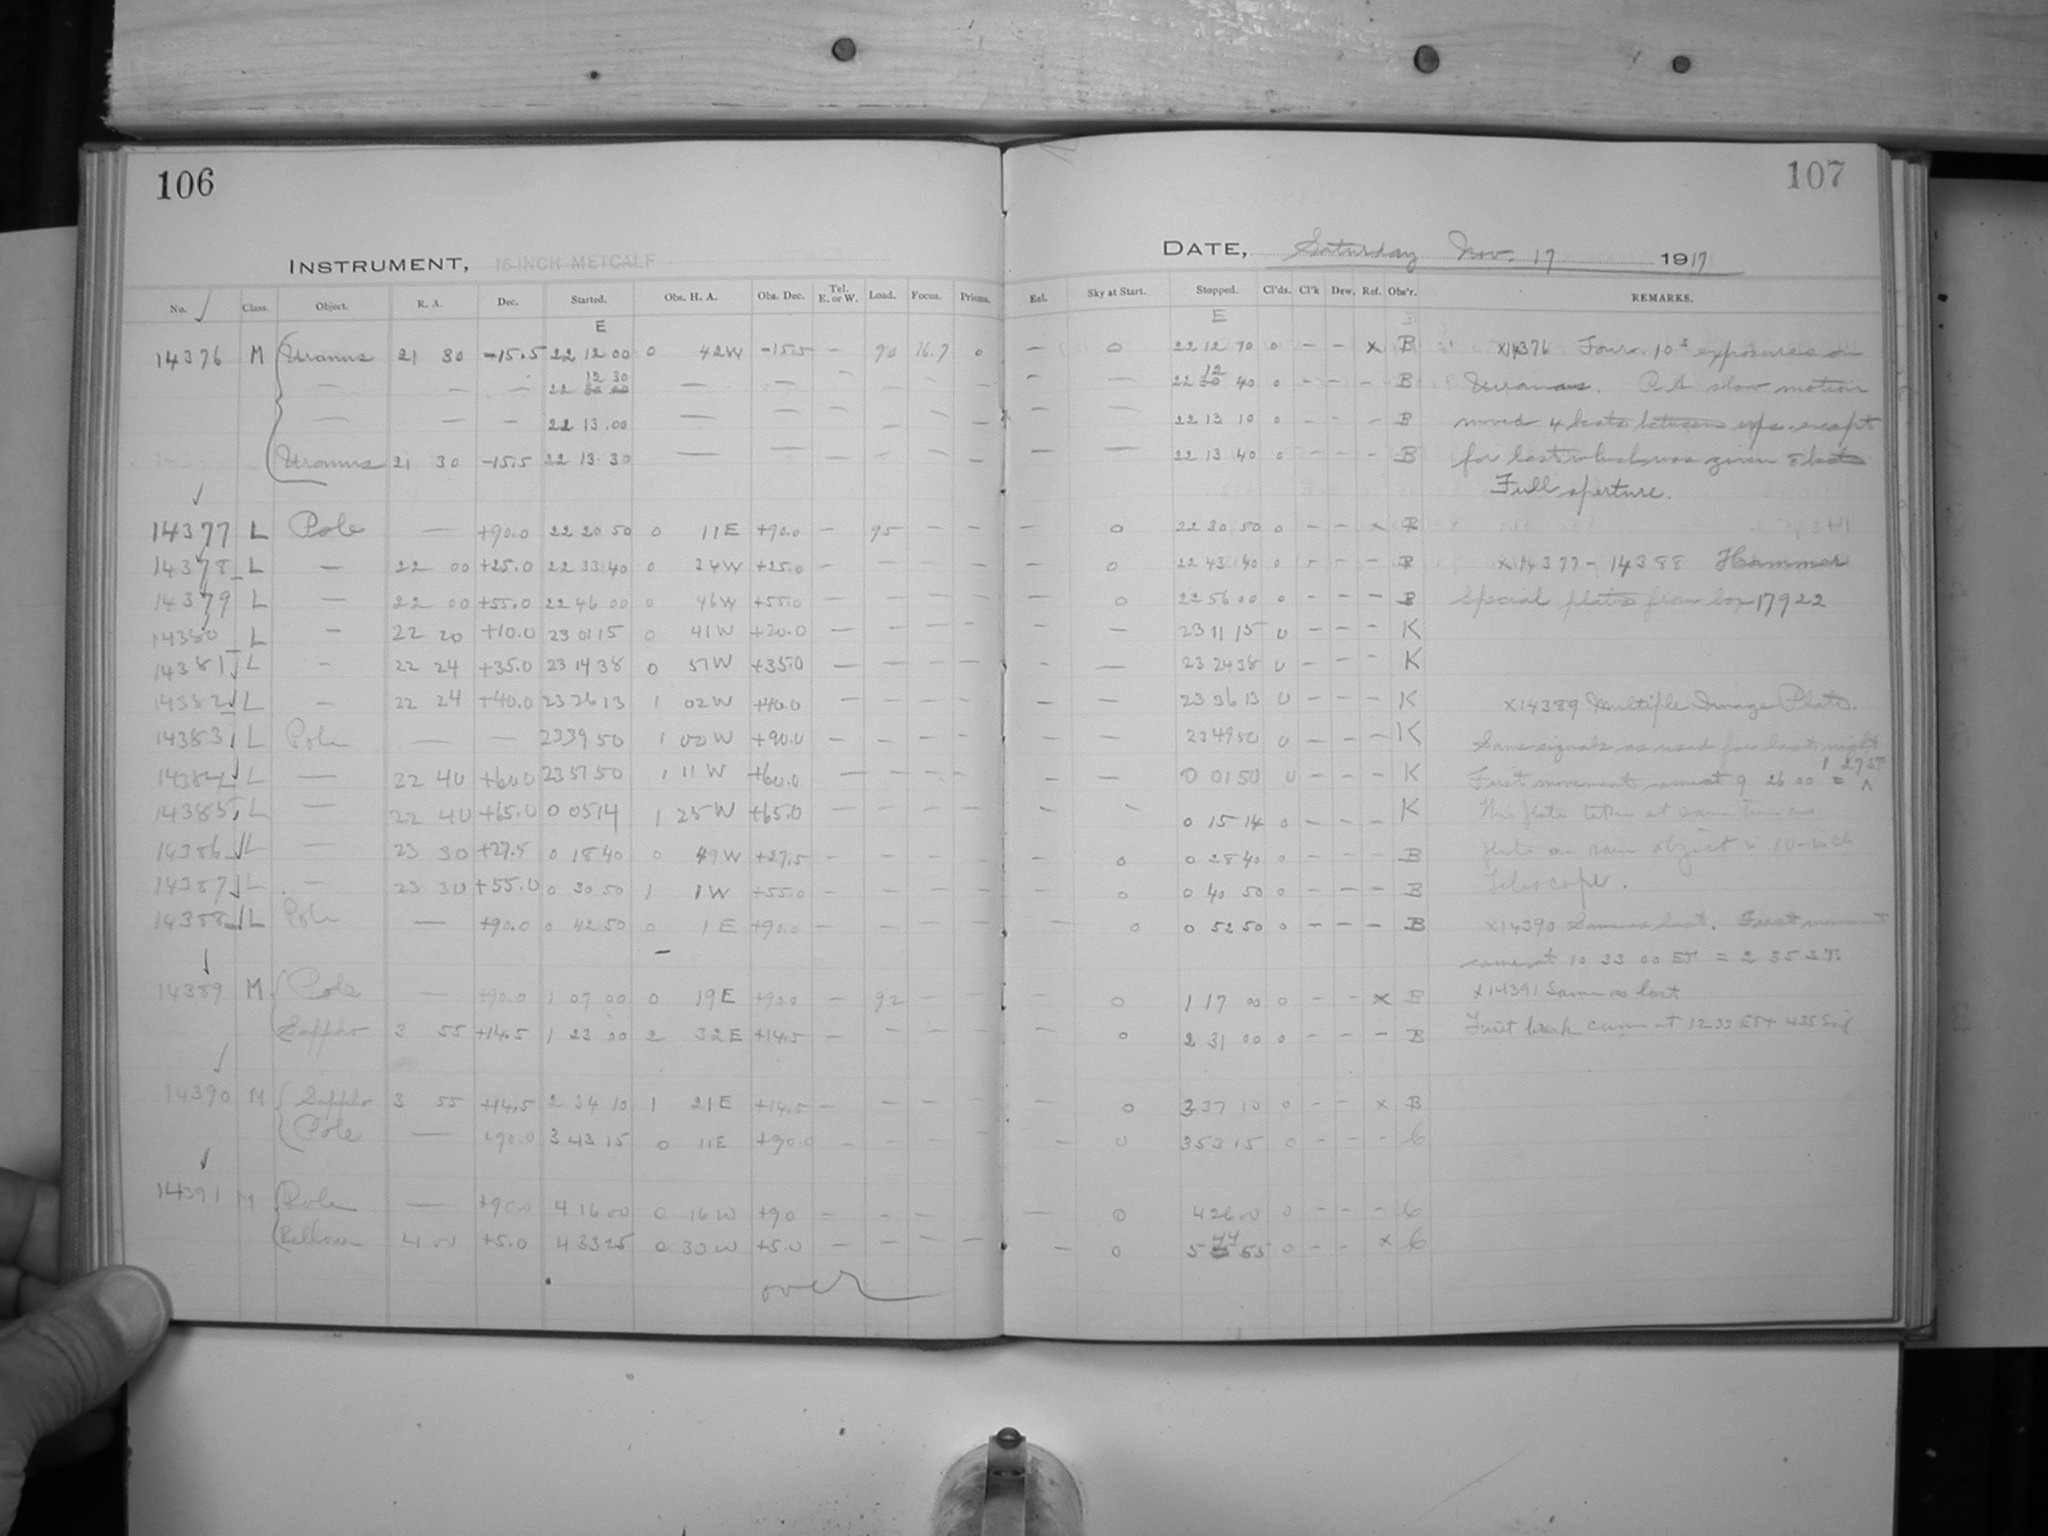 106
INSTRUMENT, 16-INCH METCALF
No. Class. Object. R. A. Dec. Started. Obs. H. A. Obs. Dec. Tel. E. or W. Load. Focus. Prisms.
E
14376 M Uranus 21 30 -15.5 22 12 00 0 42W -15.5 - 90 16.7 0
12 30
— — - 22 30 00 — — - - - -
— — - 22 13.00 — — - - - -
Uranus 21 30 -15.5 22 13 30 — — - - - -
14377 L Pole — +90.0 22 20 50 0 11E +90.0 - 95 - -
14378 L — 22 00 +25.0 22 33 40 0 34W +25.0 - - - -
14379 L — 22 00 +55.0 22 46 00 0 46W +55.0 - - - -
14380 L - 22 20 +10.0 23 01 15 0 41W +20.0 - - - -
14381 L - 22 24 +35.0 23 14 38 0 51W +35.0 - - - -
14382 L - 22 24 +40.0 23 26 13 1 02W +40.0 - - - -
14383 L Pole — — 23 39 50 1 00W +90.0 - - - -
14384 L — 22 40 +60.0 23 51 50 1 11W +60.0 - - - -
14385 L — 22 40 +65.0 0 05 14 1 25W +65.0 - - - -
14386 L — 23 30 +27.5 0 18 40 0 49W +27.5 - - - -
14387 L - 23 30 +55.0 0 30 50 1 1W +55.0 - - - -
14388 L Pole — +90.0 0 42 50 0 1E +90.0 - - - -
14389 M Pole — +90.0 1 07 00 0 19E +90.0 - 92 - -
Sappho 3 55 +14.5 1 23 00 2 32E +14.5 - - - -
14390 M Sappho 3 55 +14.5 2 34 10 1 21E +14.5 - - - -
Pole — +90.0 3 43 15 0 11E +90.0 - - - -
14391 M Pole — +90.0 4 16 00 0 16W +90 - - - -
4 00 +5.0 4 33 25 0 33W +5.0 - - - -
over
107
DATE, Saturday Nov. 17 1917
Eal. Sky at Start. Stopped. Cl'ds. Cl'k Dew. Ref. Obs'r. REMARKS.
E
- 0 22 12 10 0 - - x B x14376 Four 10s exposures on
12
- — 22 30 40 0 - - - B Uranus. R.A slow motion
- — 22 13 10 0 - - - B moved 4 beats between exps. except
- — 22 13 40 0 - - - B for last which was given 8 beats
Full aperture.
- 0 22 30 50 0 - - x B
- 0 22 43 40 0 - - - B x14377 - 14388 Hammer
- 0 22 56 00 0 - - - B Special plates from box 17922
- — 23 11 15 0 - - - K
- — 23 24 38 0 - - - K
- — 23 36 13 0 - - - K x14389 Multiple Image Plate.
- — 23 49 50 0 - - - K Same signals as used for last night
- — 0 01 50 0 - - - K First movement came at 9 26 00 = ^ 1 27 ST
- - 0 15 14 0 - - - K This plate taken at same time as
- 0 0 28 40 0 - - - B plate on same object in 10-inch
- 0 0 40 50 0 - - - B Telescope.
- 0 0 52 50 0 - - - B x14390 Same as last. First movement
came at 10 33 00 ET = 2 35 ST.
- 0 1 17 00 0 - - x B x14391 Same as last
- 0 2 31 00 0 - - - B First break came at 12 33 ET = 4 35 Sid
- 0 3 37 10 0 - - x B
- 0 3 53 15 0 - - - C
- 0 4 26 00 0 - - - C
44
- 0 5 55 0 - - x C